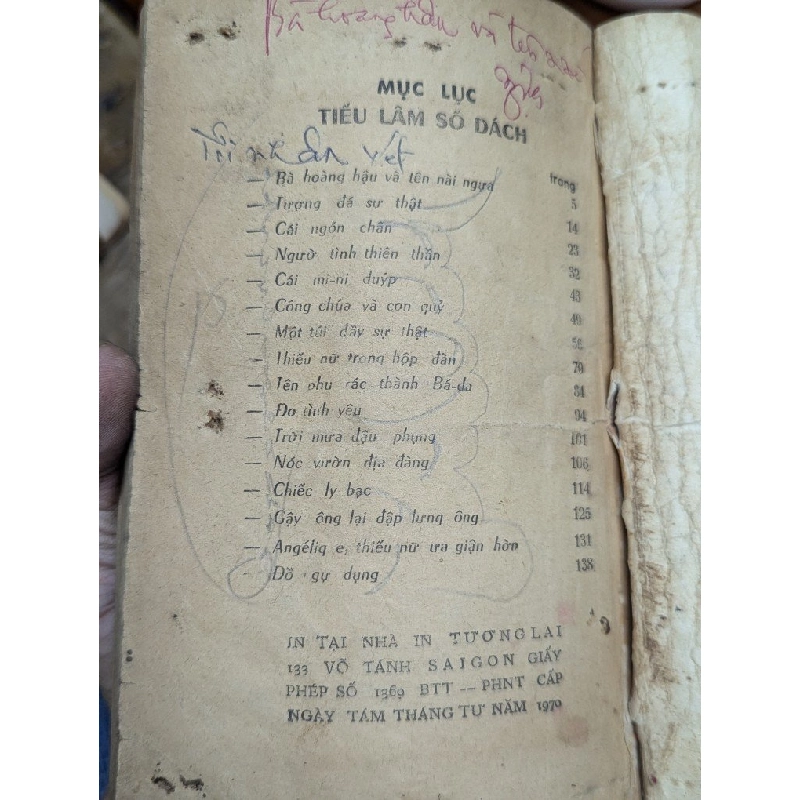 Bà hoàng hậu và tên nài
ngựa
MỤC LỤC
TIẾU LÂM SỐ DÁCH
vết
trang
— Bà hoàng hậu và tên nài ngựa 5
— Tượng đá sư thật 14
— Cái ngón chân 23
— Người tình thiên thần 32
— Cái mi-ni duýp 43
— Công chúa và con quỷ 49
— Một túi đầy sự thật 58
— Thiếu nữ trong hộp đàn 79
— Tên phu rác thành Bá-da 84
— Đo tình yêu 94
— Trời mưa đậu phụng 101
— Nóc vườn địa đàng 106
— Chiếc ly bạc 114
— Gậy ông lại đập lưng ông 125
— Angéliq e, thiếu nữ ưa giận hờn 131
— Đồ gự dụng 138
IN TẠI NHÀ IN TƯƠNG LAI
133 VÕ TÁNH SAIGON GIẤY
PHÉP SỐ 1369 BTT — PHNT CẤP
NGÀY TÁM THÁNG TƯ NĂM 1970